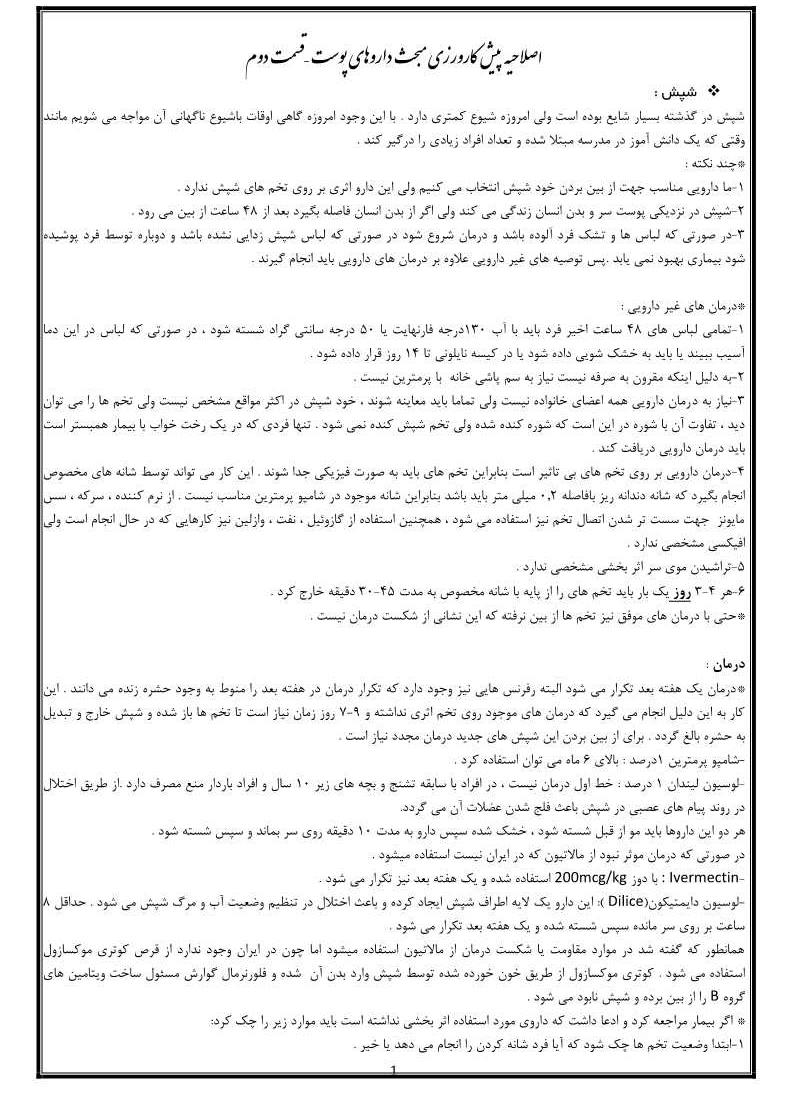 اصلاحیه پیش کارورزی مبحث داروهای پوست -قسمت دوم
❖ شپش :
شپش در گذشته بسیار شایع بوده است ولی امروزه شیوع کمتری دارد . با این وجود امروزه گاهی اوقات باشیوع ناگهانی آن مواجه می شویم مانند
وقتی که یک دانش آموز در مدرسه مبتلا شده و تعداد افراد زیادی را درگیر کند .
*چند نکته :
۱-ما دارویی مناسب جهت از بین بردن خود شپش انتخاب می کنیم ولی این دارو اثری بر روی تخم های شپش ندارد .
۲-شپش در نزدیکی پوست سر و بدن انسان زندگی می کند ولی اگر از بدن انسان فاصله بگیرد بعد از ۴۸ ساعت از بین می رود .
۳-در صورتی که لباس ها و تشک فرد آلوده باشد و درمان شروع شود در صورتی که لباس شپش زدایی نشده باشد و دوباره توسط فرد پوشیده
شود بیماری بهبود نمی یابد .پس توصیه های غیر دارویی علاوه بر درمان های دارویی باید انجام گیرند .
*درمان های غیر دارویی :
۱-تمامی لباس های ۴۸ ساعت اخیر فرد باید با آب ۱۳۰درجه فارنهایت یا ۵۰ درجه سانتی گراد شسته شود ، در صورتی که لباس در این دما
آسیب ببیند یا باید به خشک شویی داده شود یا در کیسه نایلونی تا ۱۴ روز قرار داده شود .
۲-به دلیل اینکه مقرون به صرفه نیست نیاز به سم پاشی خانه با پرمترین نیست .
۳-نیاز به درمان دارویی همه اعضای خانواده نیست ولی تماما باید معاینه شوند ، خود شپش در اکثر مواقع مشخص نیست ولی تخم ها را می توان
دید ، تفاوت آن با شوره در این است که شوره کنده شده ولی تخم شپش کنده نمی شود . تنها فردی که در یک رخت خواب با بیمار همبستر است
باید درمان دارویی دریافت کند .
۴-درمان دارویی بر روی تخم های بی تاثیر است بنابراین تخم های باید به صورت فیزیکی جدا شوند . این کار می تواند توسط شانه های مخصوص
انجام بگیرد که شانه دندانه ریز بافاصله ۰,۲ میلی متر باید باشد بنابراین شانه موجود در شامپو پرمترین مناسب نیست . از نرم کننده ، سرکه ، سس
مایونز جهت سست تر شدن اتصال تخم نیز استفاده می شود ، همچنین استفاده از گازوئیل ، نفت ، وازلین نیز کارهایی که در حال انجام است ولی
افیکسی مشخصی ندارد .
۵-تراشیدن موی سر اثر بخشی مشخصی ندارد .
۶-هر ۴-۳ روز یک بار باید تخم های را از پایه با شانه مخصوص به مدت ۴۵-۳۰ دقیقه خارج کرد .
*حتی با درمان های موفق نیز تخم ها از بین نرفته که این نشانی از شکست درمان نیست .
درمان :
*درمان یک هفته بعد تکرار می شود البته رفرنس هایی نیز وجود دارد که تکرار درمان در هفته بعد را منوط به وجود حشره زنده می دانند . این
کار به این دلیل انجام می گیرد که درمان های موجود روی تخم اثری نداشته و ۹-۷ روز زمان نیاز است تا تخم ها باز شده و شپش خارج و تبدیل
به حشره بالغ گردد . برای از بین بردن این شپش های جدید درمان مجدد نیاز است .
-شامپو پرمترین ۱درصد : بالای ۶ ماه می توان استفاده کرد .
-لوسیون لیندان ۱ درصد : خط اول درمان نیست ، در افراد با سابقه تشنج و بچه های زیر ۱۰ سال و افراد باردار منع مصرف دارد .از طریق اختلال
در روند پیام های عصبی در شپش باعث فلج شدن عضلات آن می گردد.
هر دو این داروها باید مو از قبل شسته شود ، خشک شده سپس دارو به مدت ۱۰ دقیقه روی سر بماند و سپس شسته شود .
در صورتی که درمان موثر نبود از مالاتیون که در ایران نیست استفاده میشود .
-Ivermectin : با دوز 200mcg/kg استفاده شده و یک هفته بعد نیز تکرار می شود .
-لوسیون دایمتیکون(Dilice ): این دارو یک لایه اطراف شپش ایجاد کرده و باعث اختلال در تنظیم وضعیت آب و مرگ شپش می شود . حداقل ۸
ساعت بر روی سر مانده سپس شسته شده و یک هفته بعد تکرار می شود .
همانطور که گفته شد در موارد مقاومت یا شکست درمان از مالاتیون استفاده میشود اما چون در ایران وجود ندارد از قرص کوتری موکسازول
استفاده می شود . کوتری موکسازول از طریق خون خورده شده توسط شپش وارد بدن آن شده و فلورنرمال گوارش مسئول ساخت ویتامین های
گروه B را از بین برده و شپش نابود می شود .
* اگر بیمار مراجعه کرد و ادعا داشت که داروی مورد استفاده اثر بخشی نداشته است باید موارد زیر را چک کرد:
۱-ابتدا وضعیت تخم ها چک شود که آیا فرد شانه کردن را انجام می دهد یا خیر .
1